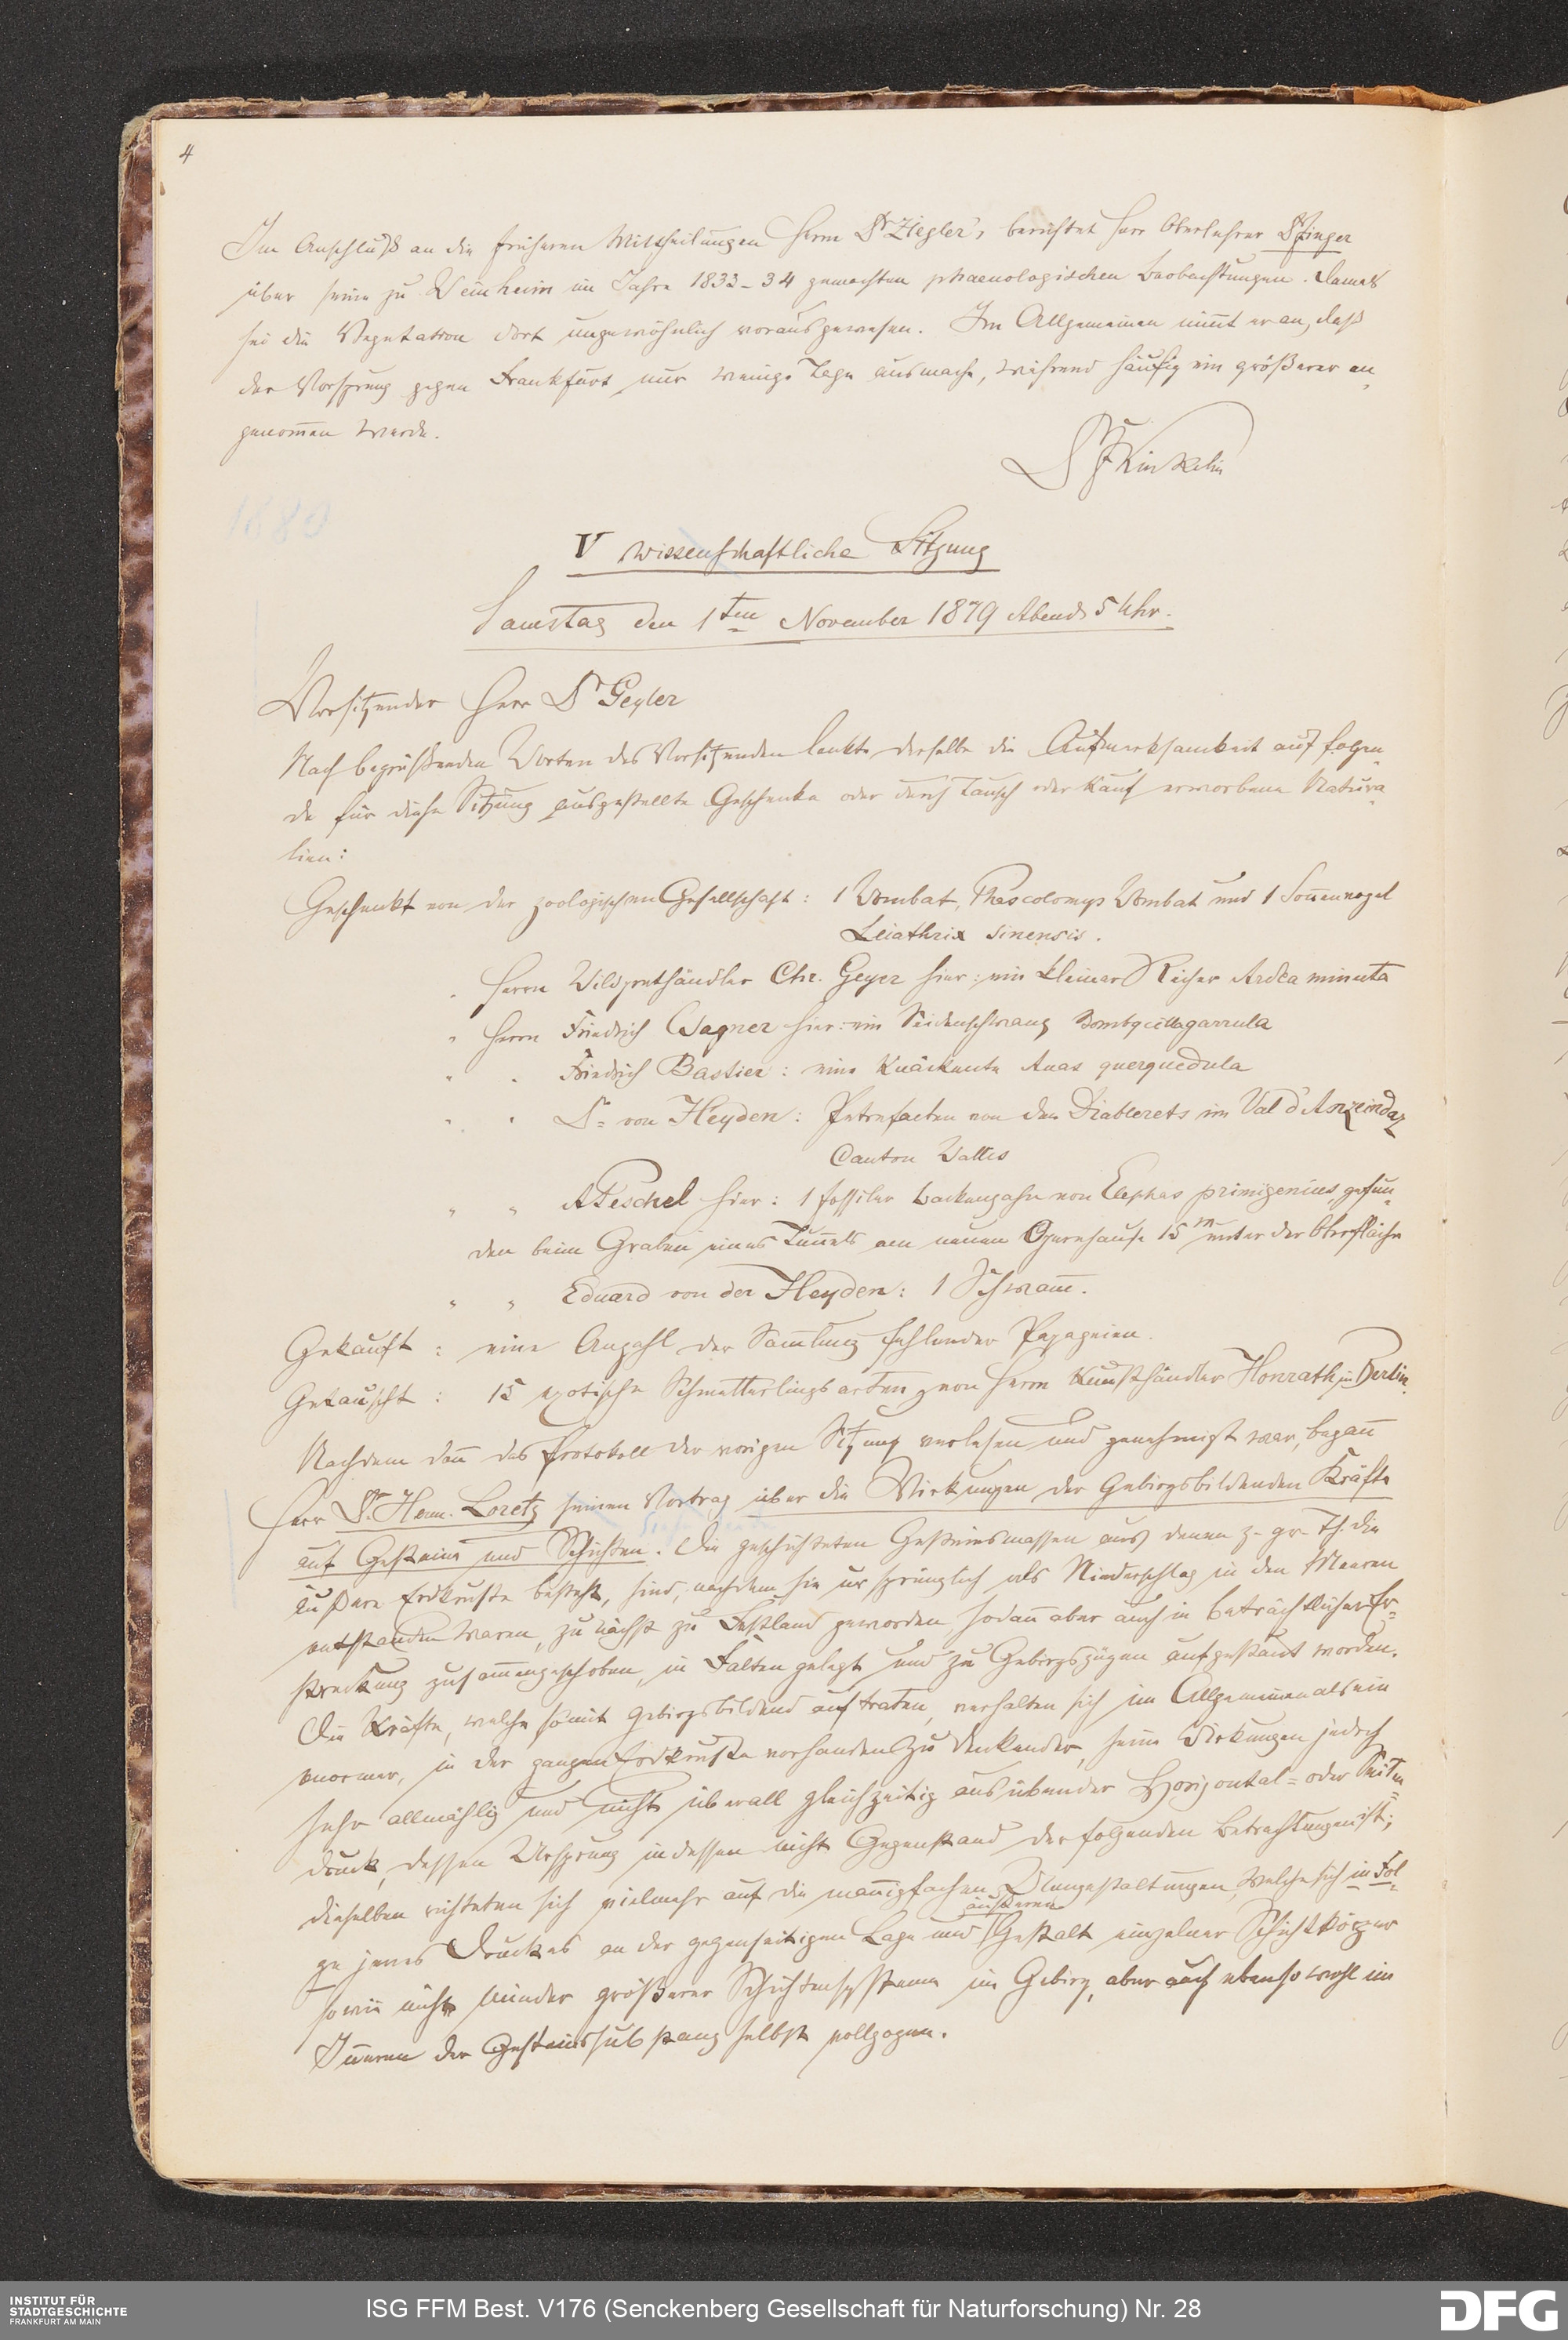 4
Im Anschluß an die früheren Mittheilungen Herrn Dr Ziegler's berichtet Herr Oberlehrer Dr Finger
über seine zu Weinheim im Jahre 1833-34 gemachten phaenologischen Beobachtungen. Damals
sei die Vegetation dort ungewöhnlich vorausgewesen. Im Allgemeinen nim̅t er an, daß
der Vorsprung gegen Frankfurt nur wenige Tage ausmache, während häufig ein größerer an-
genom̅en werde.
Dr F Kinkelin
1880
V wissenschaftliche Sitzung
Samstag den 1ten November 1879 Abends 5 Uhr.
Vorsitzender Herr Dr Geyler
Nach begrüßenden Worten des Vorsitzenden lenkte derselbe die Aufmerksamkeit auf folgen-
de für diese Sitzung ausgestellte Geschenke oder durch Tausch oder Kauf erworbene Natura-
lien:
Geschenkt von der zoologischen Gesellschaft: 1 Wombat, Phascolomys Wombat und 1 Son̅envogel
Leiathrix sinensis.
" Herrn Wildprethändler Chr. Geyer hier: ein kleiner Reiher Ardea minuta
" Herrn Friedrich Wagner hier: ein Seidenschwanz Bombycilla garrula
" " Friedrich Bastier: eine Knäckente Anas querquedula
" " Dr von Heyden: Petrefacten von den Diablerets im Val d'Anzeindaz
Canton Wallis
" " A Peschel hier: 1 fossiler Backenzahn von Elephas primigenius, gefun-
den beim Graben eines Tun̅els am neuen Opernhause 15 m unter der Oberfläche
" " Eduard von der Heyden: 1 Schwam̅.
Gekauft: eine Anzahl der Sam̅lung fehlender Papageien.
Getauscht: 15 exotische Schmetterlingsarten von Herrn Kunsthändler Honrath in Berlin.
Nachdem dan̅ das Protokoll der vorigen Sitzung verlesen und genehmigt war, began̅
Herr Dr. Herm. Loretz seinen Vortrag über die Wirkungen der Gebirgsbildenden Kräfte
auf Gesteine und Schichten. Die geschichteten Gesteinsmassen aus denen z. gr. Th. die
äußere Erdkruste besteht, sind, nachdem sie ursprünglich als Niederschlag in den Meeren
entstanden waren, zunächst zu Festland geworden, sodan̅ aber auch in beträchtlicher Er-
streckung zusam̅engeschoben, in Falten gelegt und zu Gebirgszügen aufgestaut worden.
Die Kräfte, welche somit gebirgsbildend auftraten, verhalten sich im Allgemeinen als ein
enormer, in der ganzen Erdkruste vorhanden zu denkender, seine Wirkungen jedoch
sehr allmählig und nicht überall gleichzeitig ausübender Horizontal- oder Seiten-
druck, dessen Ursprung indessen nicht Gegenstand der folgenden Betrachtungen ist;
dieselben richteten sich vielmehr auf die man̅igfachen Umgestaltungen, welche sich in Fol-
ge jenes Druckes an der gegenseitigen Lage und äußeren Gestalt einzelner Schichtkörper
sowie nicht minder größerer Schichtensysteme im Gebirg, aber auch ebensowohl im
In̅eren der Gesteinssubstanz selbst vollzogen.
INSTITUT FÜR
STADTGESCHICHTE
FRANKFURT AM MAIN
ISG FFM Best. V176 (Senckenberg Gesellschaft für Naturforschung) Nr. 28
DFG